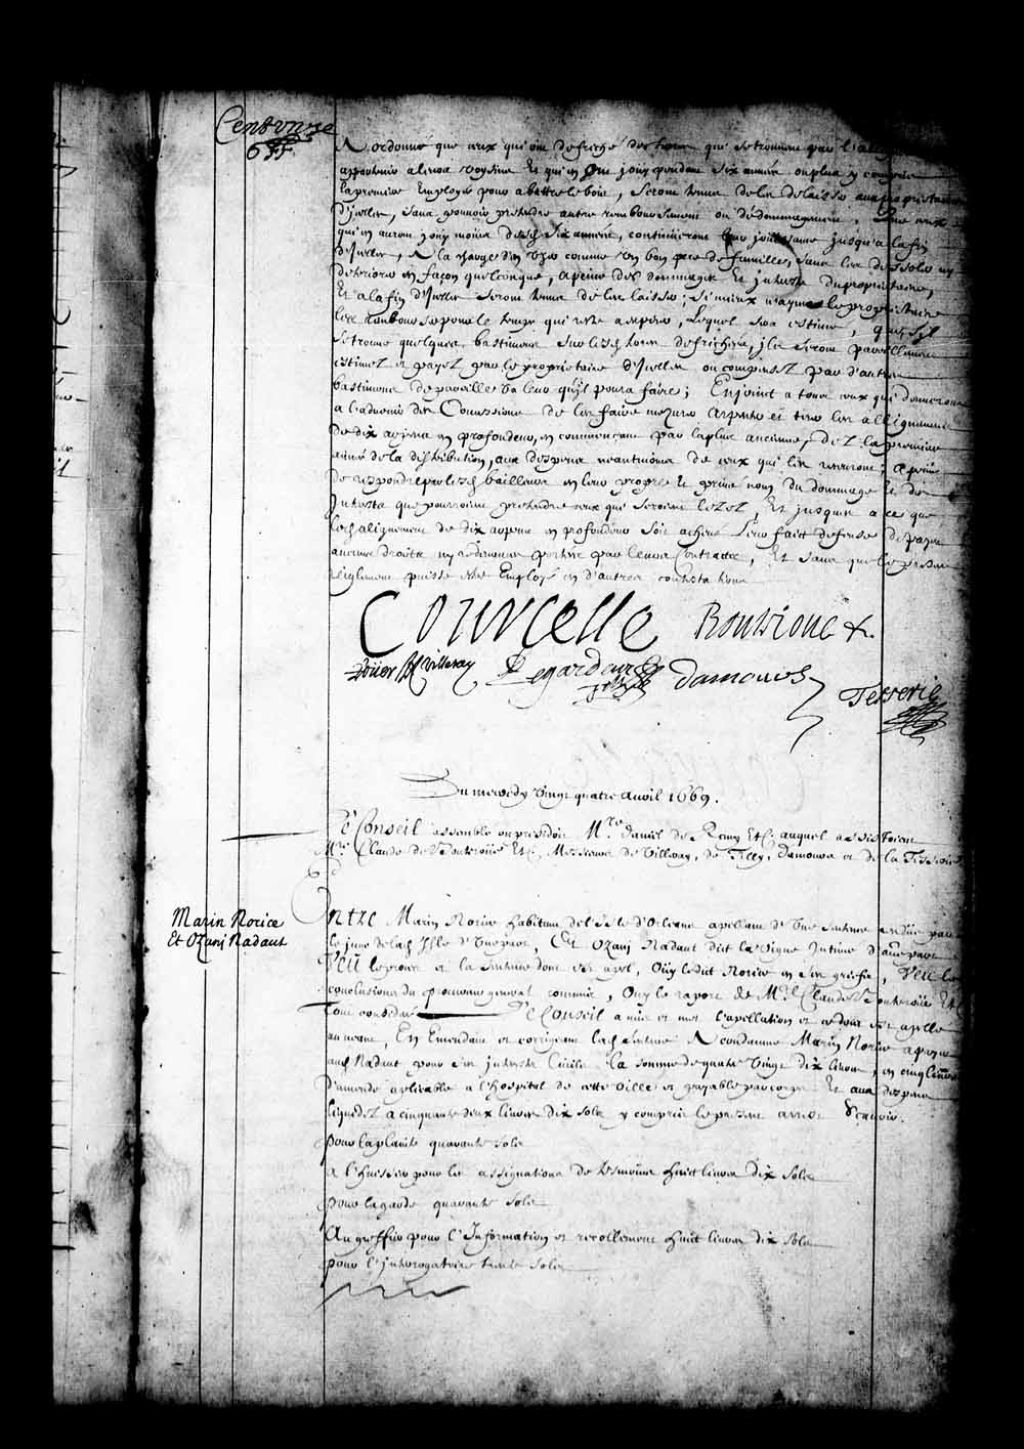 Cent onze
A ordonné que ceux qui ont defriché des terres qui se trouvent par l'alig
appartenir a leurs voysins Et qui en ont jouy pendant six années ou plus y compris
la premiere Employée pour abattre le bois, seront tenus de les delaisser aux proprietaires
d'jcelles, sans pouvoir pretendre autre remboursement ou dédommagement, Que ceux
qui en auront jouy moins desd. six années, continueront leur jouissance jusqu'a la fin
d'jcelles, A la charge d'en user comme un bon pere de famille, sans les dessoler ny
deteriorer en façon quelconque, a peine des dommages Et jnterests du proprietaire,
Et a la fin d'jcelles seront tenus de les laisser; si mieux n'ayme le proprietaire
les rembourser pour le temps qui reste a expirer, Lequel sera estimé, Que s'jl
se trouve quelques bastimens sur lesd. terres defrichées, jls seront pareillement
estimez et payez par le proprietaire d'jcelles ou compensez par d'autres
bastimens de pareille valeur qu'jl poura faire; Enjoint a tous ceux qui donneront
a l'advenir des Concessions de les faire mezurer Arpenter et tirer les allignemens
de dix arpens en profondeur, en commençant par la plus ancienne, dez la premiere
année de la distribution, aux despens neantmoins de ceux qui les recevront; a peine
de respondre par lesd. bailleurs en leur propre Et privé nom du dommage Et des
Jnterests que pourroient pretendre ceux qui seroient lezez, Et jusques a ce que
led. alignement de dix arpens en profondeur soit achevé leur fait defenses de payer
aucuns droits ny redevances portées par leurs Contracts, Et sans que le present
reiglement puisse estre Employé en d'autres contestations
Courcelle Boutroue &.
Roüer de Villeray Legardeur Damours Tesserie
Du mercredy vingt quatre Auril 1669.
Le Conseil assemblé ou presidoit M.re daniel de Remy Etc. auquel assistoient
M.re Claude de Bouteroüe Etc. Messieurs de Villeray, de Tilly, Damours et de la Tesserie
Marin Norice
Et Ozani Nadaut
Entre Marin Norice habitant de l'Jsle d'Orleans apellant de Une sentence rendüe par
le juge de lad. Jsle d'Une part, Et Ozani Nadaut dict la Vigne Jntimé d'autre part
Veu le procés et la sentence dont est apel, Oüy ledict Norice en ses griefs, Veu les
conclusions du procureur general commis, Ouy le raport de M.re Claude de Bouteroüe Etc
Tout consideré Le Conseil a mis et met l'apellation et ce dont est apellé
au neant, En Emendant et corrigeant lad. sentence A condamné Marin Norice a payer
aud. Nadaut pour son jnterest Civile la somme de quatre vingt dix livres, en cinq livres
d'amende aplicable a l'hospital de cette Ville et payable par corps Et aux despens
liquidez a cinquante deux livres dix sols y compris le present arrest Sçavoir.
pour la plainte quarante sols
a l'huissier pour les assignations de tesmoins huict livres dix sols
pour la garde quarante sols
Au greffier pour l'Jnformation et recollement huict livres dix sols
pour l'jnterogatoire trente sols